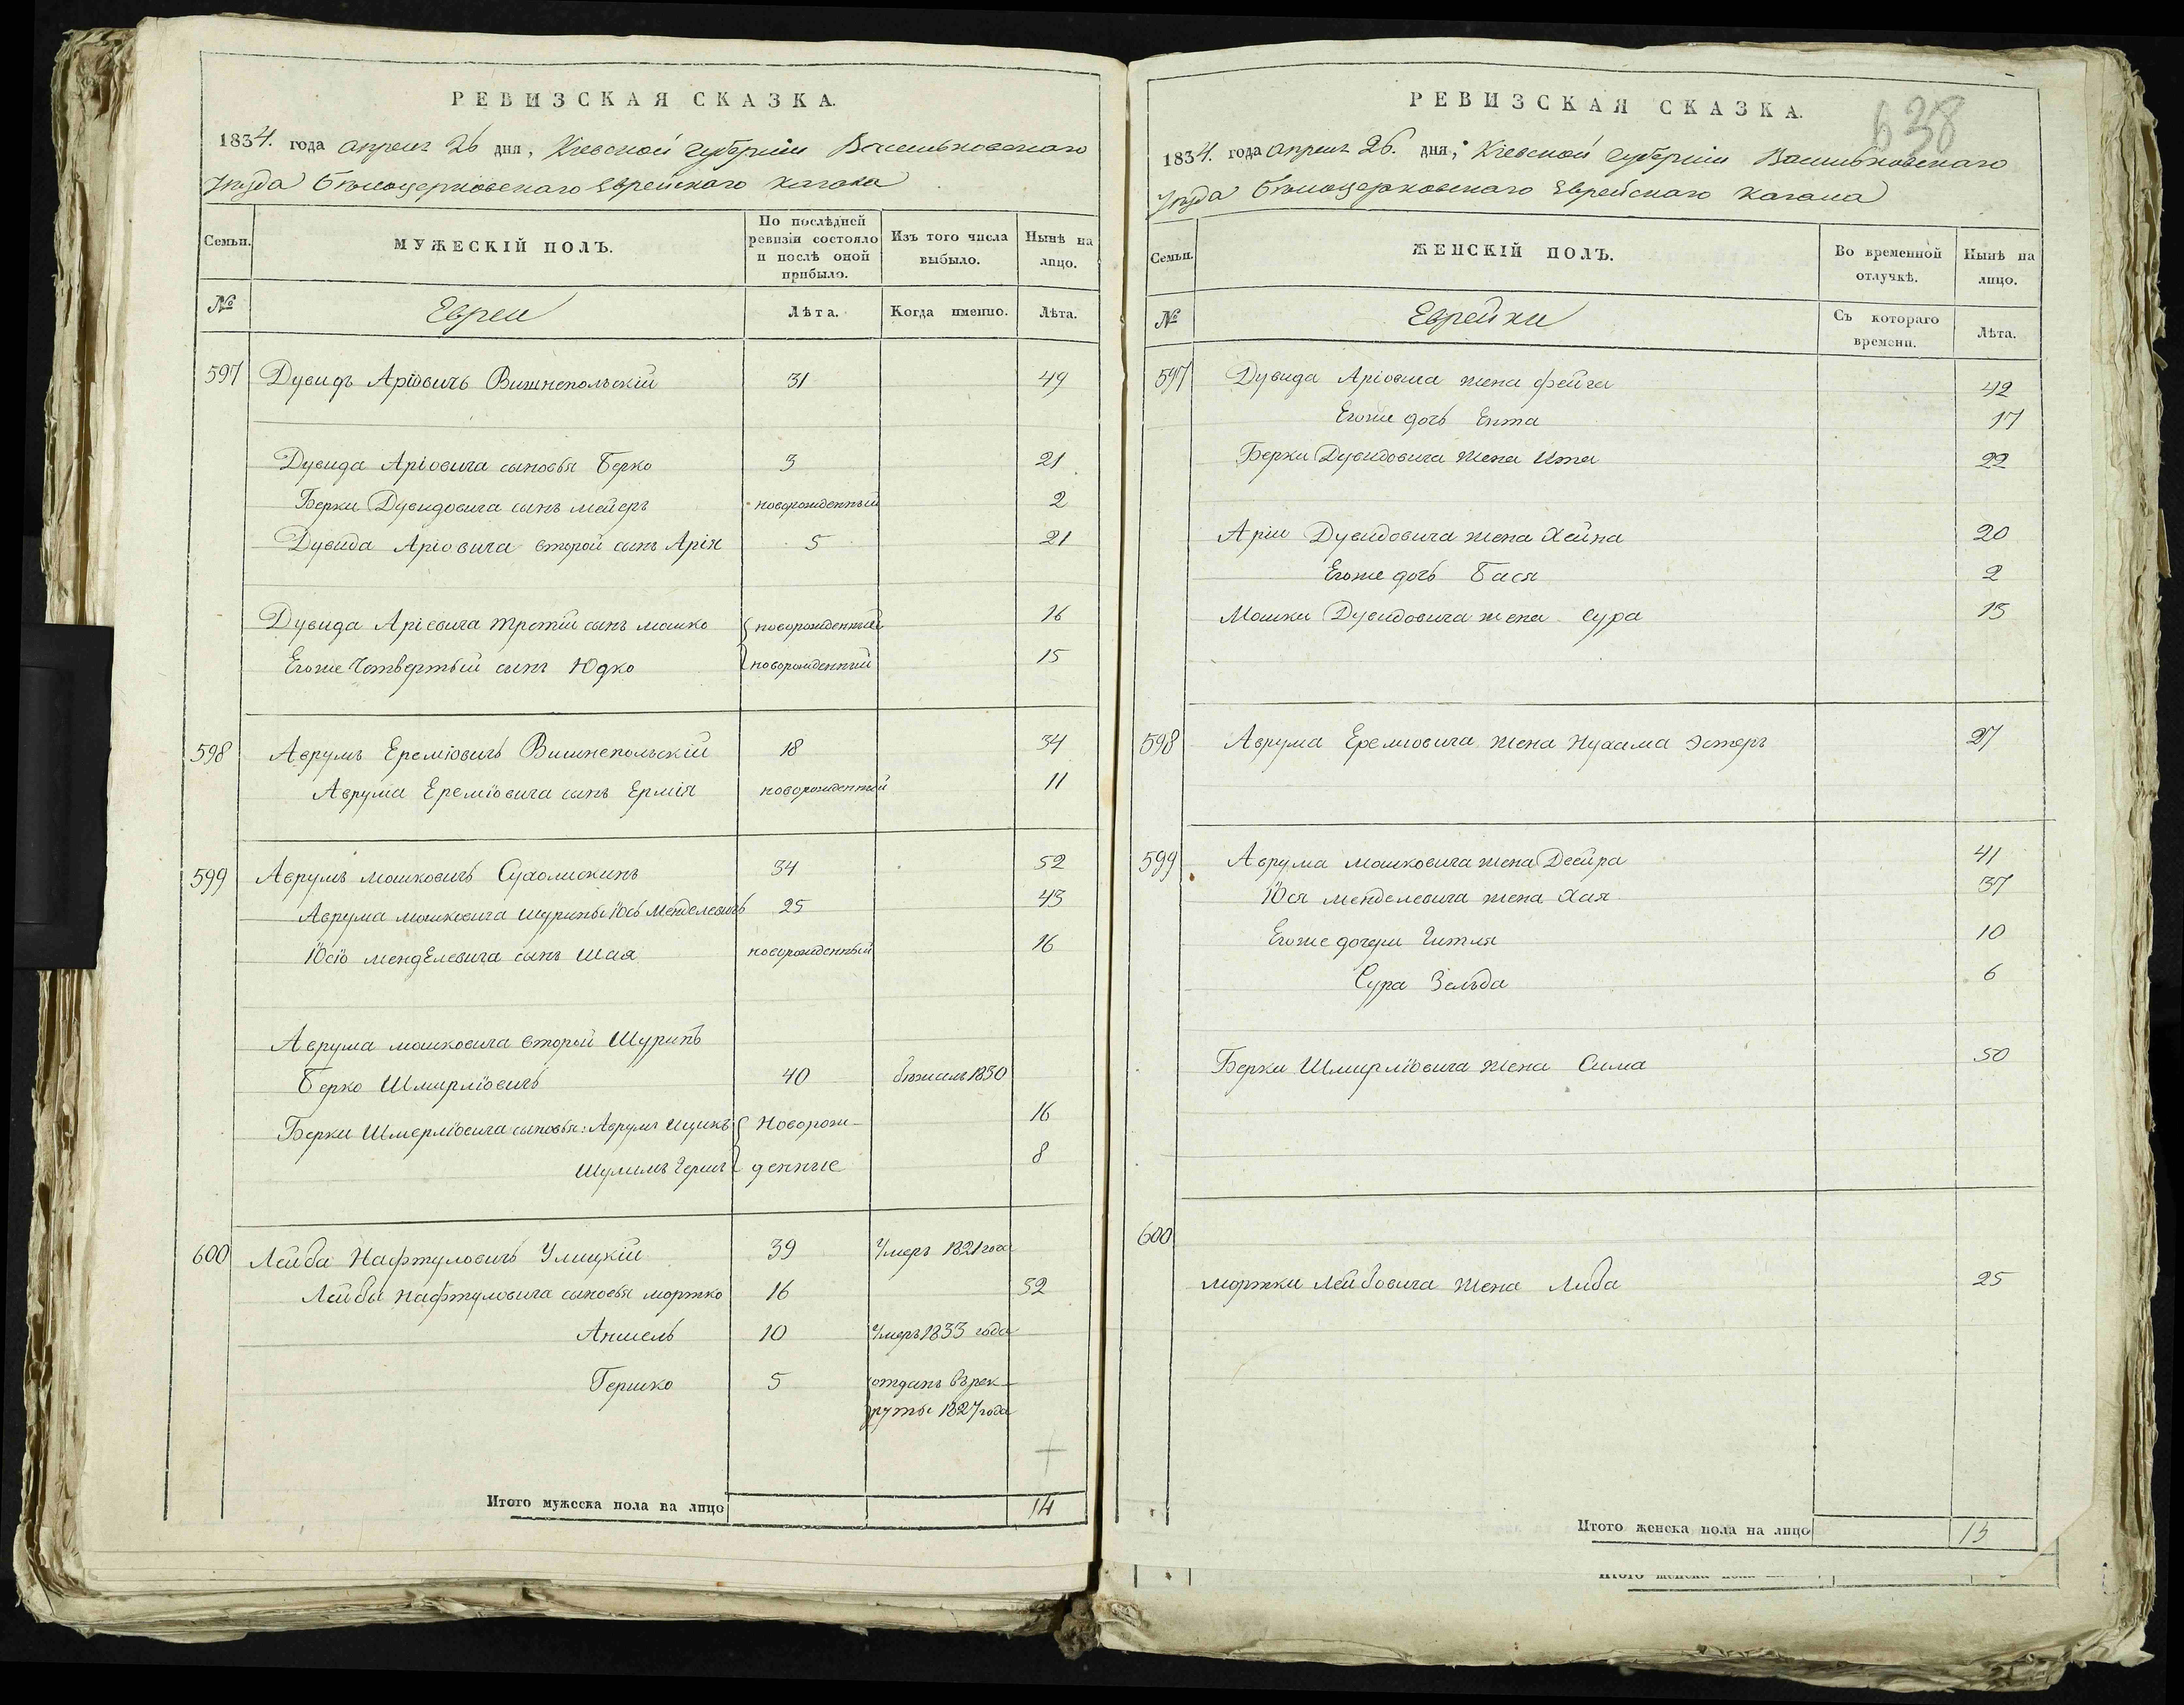 РЕВИЗСКАЯ СКАЗКА.
1834. года апреля 26 дня, Кіевской губерніи Васильковскаго
Уезда Белоцерковскаго Еврейскаго кагала
Семьи.
МУЖЕСКІЙ ПОЛЪ.
По послѣдней ревизіи состояло и послѣ оной прибыло.
Изъ того числа выбыло.
Нынѣ на лицо.
№
Евреи
Лѣта.
Когда именно.
Лѣта.
597 Дувидъ Аріовичъ Вишнепольскій 31 49
Дувида Аріовича сыновья Берко 3 21
Берки Дувидовича сынъ мейеръ новорожденный 2
Дувида Аріовича второй сынъ Арія 5 21
Дувида Аріевича третій сынъ мошко новорожденный 16
Егоже Четвертый сынъ Юдко новорожденный 15
598 Аврумъ Ереміовичъ Вишнепольскій 18 34
Аврума Ереміовича сынъ Ермія новорожденный 11
599 Аврумъ мошковичъ Сухолискинъ 34 52
Аврума мошковича шурины Юсь Менделевичъ 25 43
Юсіо менделевича сынъ шая новорожденный 16
Аврума мошковича второй Шуринъ
Берко Шмирліовичъ 40 бежалъ 1830
Берки Шмерліовича сыновья: Аврумъ Ицикъ Новорож- 16
Шулимъ Гершъ денные 8
600 Лейба Нафтуловичъ Улицкій 39 Умеръ 1821 года
Лейбы нафтуловича сыновья мортко 16 32
Аншель 10 Умеръ 1833 года
Гершко 5 отданъ въ рек-
руты 1827 года
Итого мужеска пола на лицо 14
РЕВИЗСКАЯ СКАЗКА.
638
1834. года апреля 26. дня, Кіевской губерніи Васильковскаго
Уезда Белоцерковскаго Еврейскаго кагала
Семьи.
ЖЕНСКІЙ ПОЛЪ.
Во временной отлучкѣ.
Нынѣ на лицо.
№
Еврейки
Съ котораго времени.
Лѣта.
597 Дувида Аріовича жена фейга 42
Егоже дочь Ента 17
Берки Дувидовича жена Ита 22
Аріи Дувидовича жена Хейна 20
Егоже дочь Бася 2
Мошки Дувидовича жена Сура 15
598 Аврума Ереміовича жена Нухама Эстеръ 27
599 Аврума мошковича жена Двейра 41
Юся менделевича жена Хая 37
Егоже дочери Гитля 10
Сура Зельда 6
Берки Шмирліовича жена Сима 50
600
мортки Лейбовича жена Либа 25
Итого женска пола на лицо 13